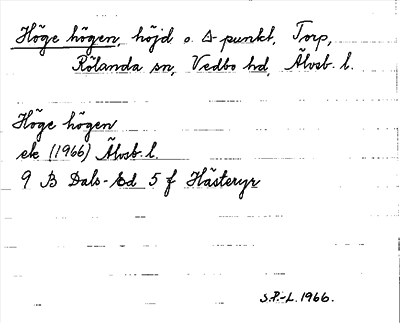 Höge högen, höjd o. Δ-punkt, Torp,
Rölanda sn, Vedbo hd, Älvsb. l.
Höge högen
ek (1966) Älvsb. l.
9 B Dals-Ed 5 f Hästeryr
S.P.-L. 1966.